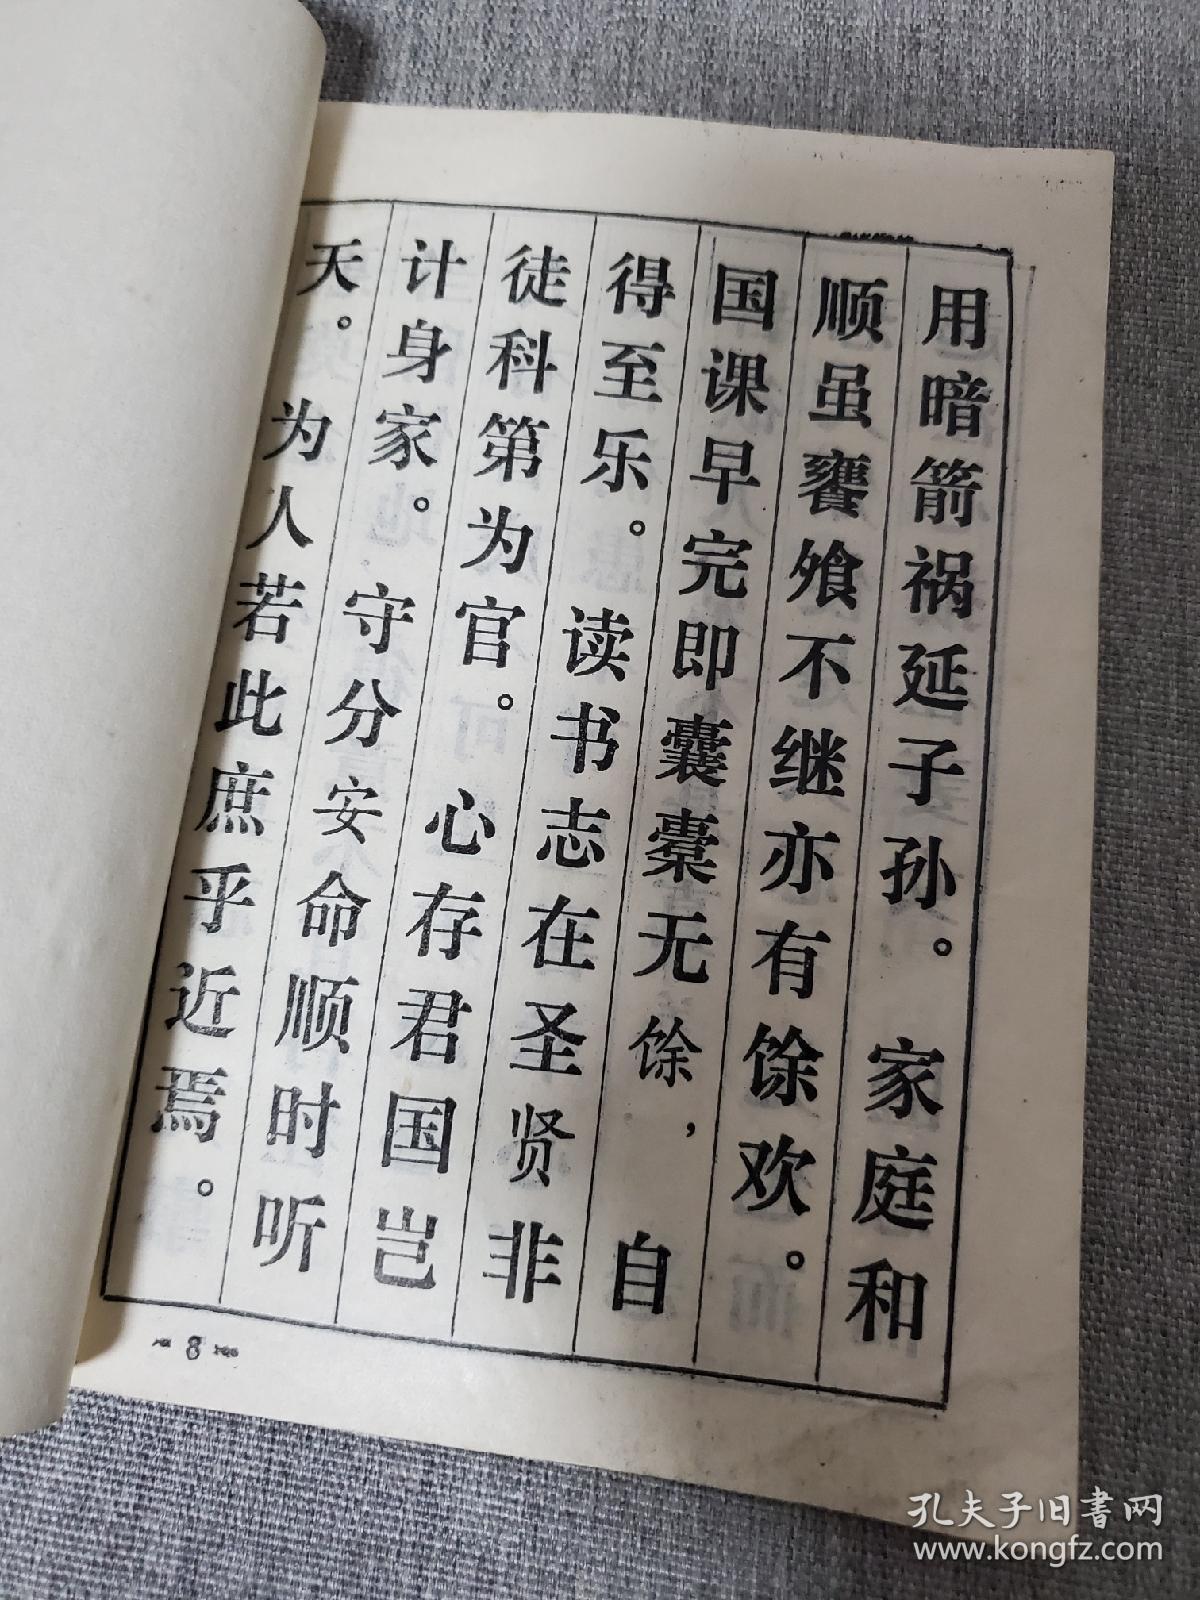 用暗箭祸延子孙。 家庭和
顺虽饔飧不继亦有馀欢。
国课早完即囊橐无馀，自
得至乐。 读书志在圣贤非
徒科第为官。 心存君国岂
计身家。 守分安命顺时听
天。 为人若此庶乎近焉。
8
孔夫子旧书网
www.kongfz.com